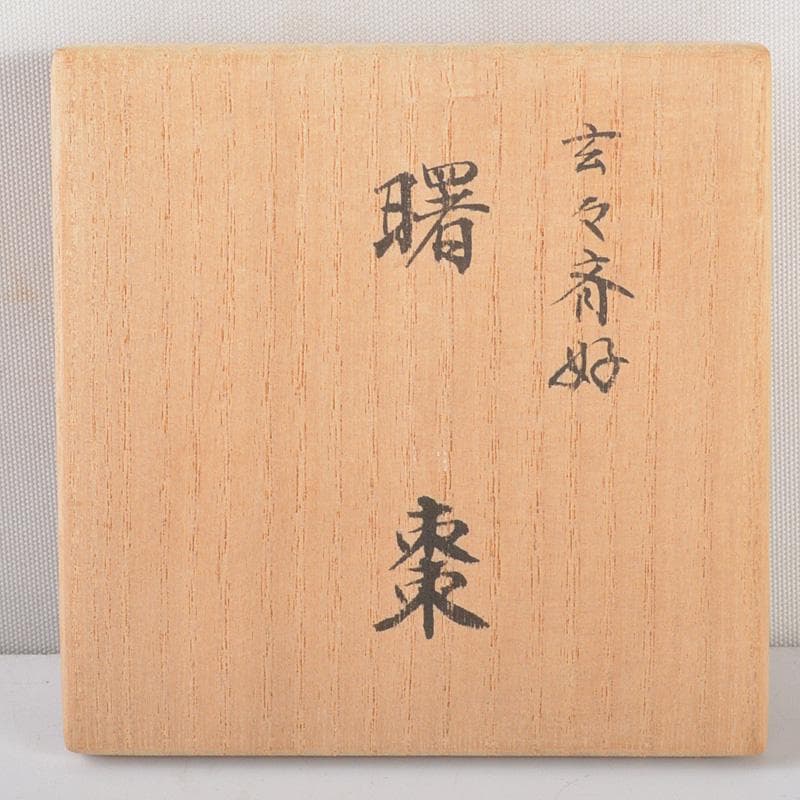 玄々斎好
曙棗